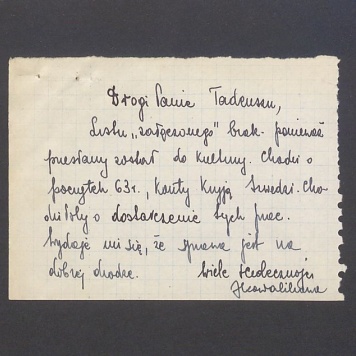 Drogi Panie Tadeuszu,
Listu „załączonego” brak - ponieważ
przesłany został do Kultury. Chodzi o
początek 63 r., kiedy
dostarczenie tych prac.
Wydaje mi się, że sprawa jest na
dobrej drodze. Wiele serdeczności